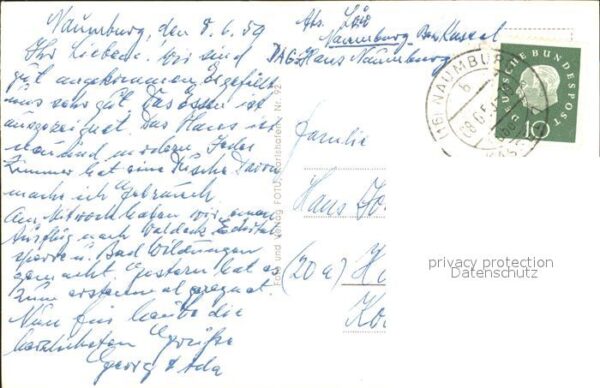 Naumburg, den 8.6.59
Ihr Lieben! Wir sind
gut angekommen. Es gefällt
uns sehr gut. Das Essen ist
ausgezeichnet. Das Haus ist
modern. Jedes
Zimmer hat eine Dusche. Davon
mache ich Gebrauch.
Am Mittwoch haben wir einen
Ausflug nach Waldeck Edertal
sperre u. Bad Wildungen
gemacht. Gestern hat es
zum erstenmal geregnet
Nun für heute die
herzlichsten Grüße
Georg & Ada
Abs.
Naumburg Bez. Kassel
DAG Haus Naumburg
(16) NAUMBURG
DEUTSCHE BUNDESPOST
10
Familie
Hans
(20a) H
Foto und Verlag FOTO Nr. 92
privacy protection
Datenschutz